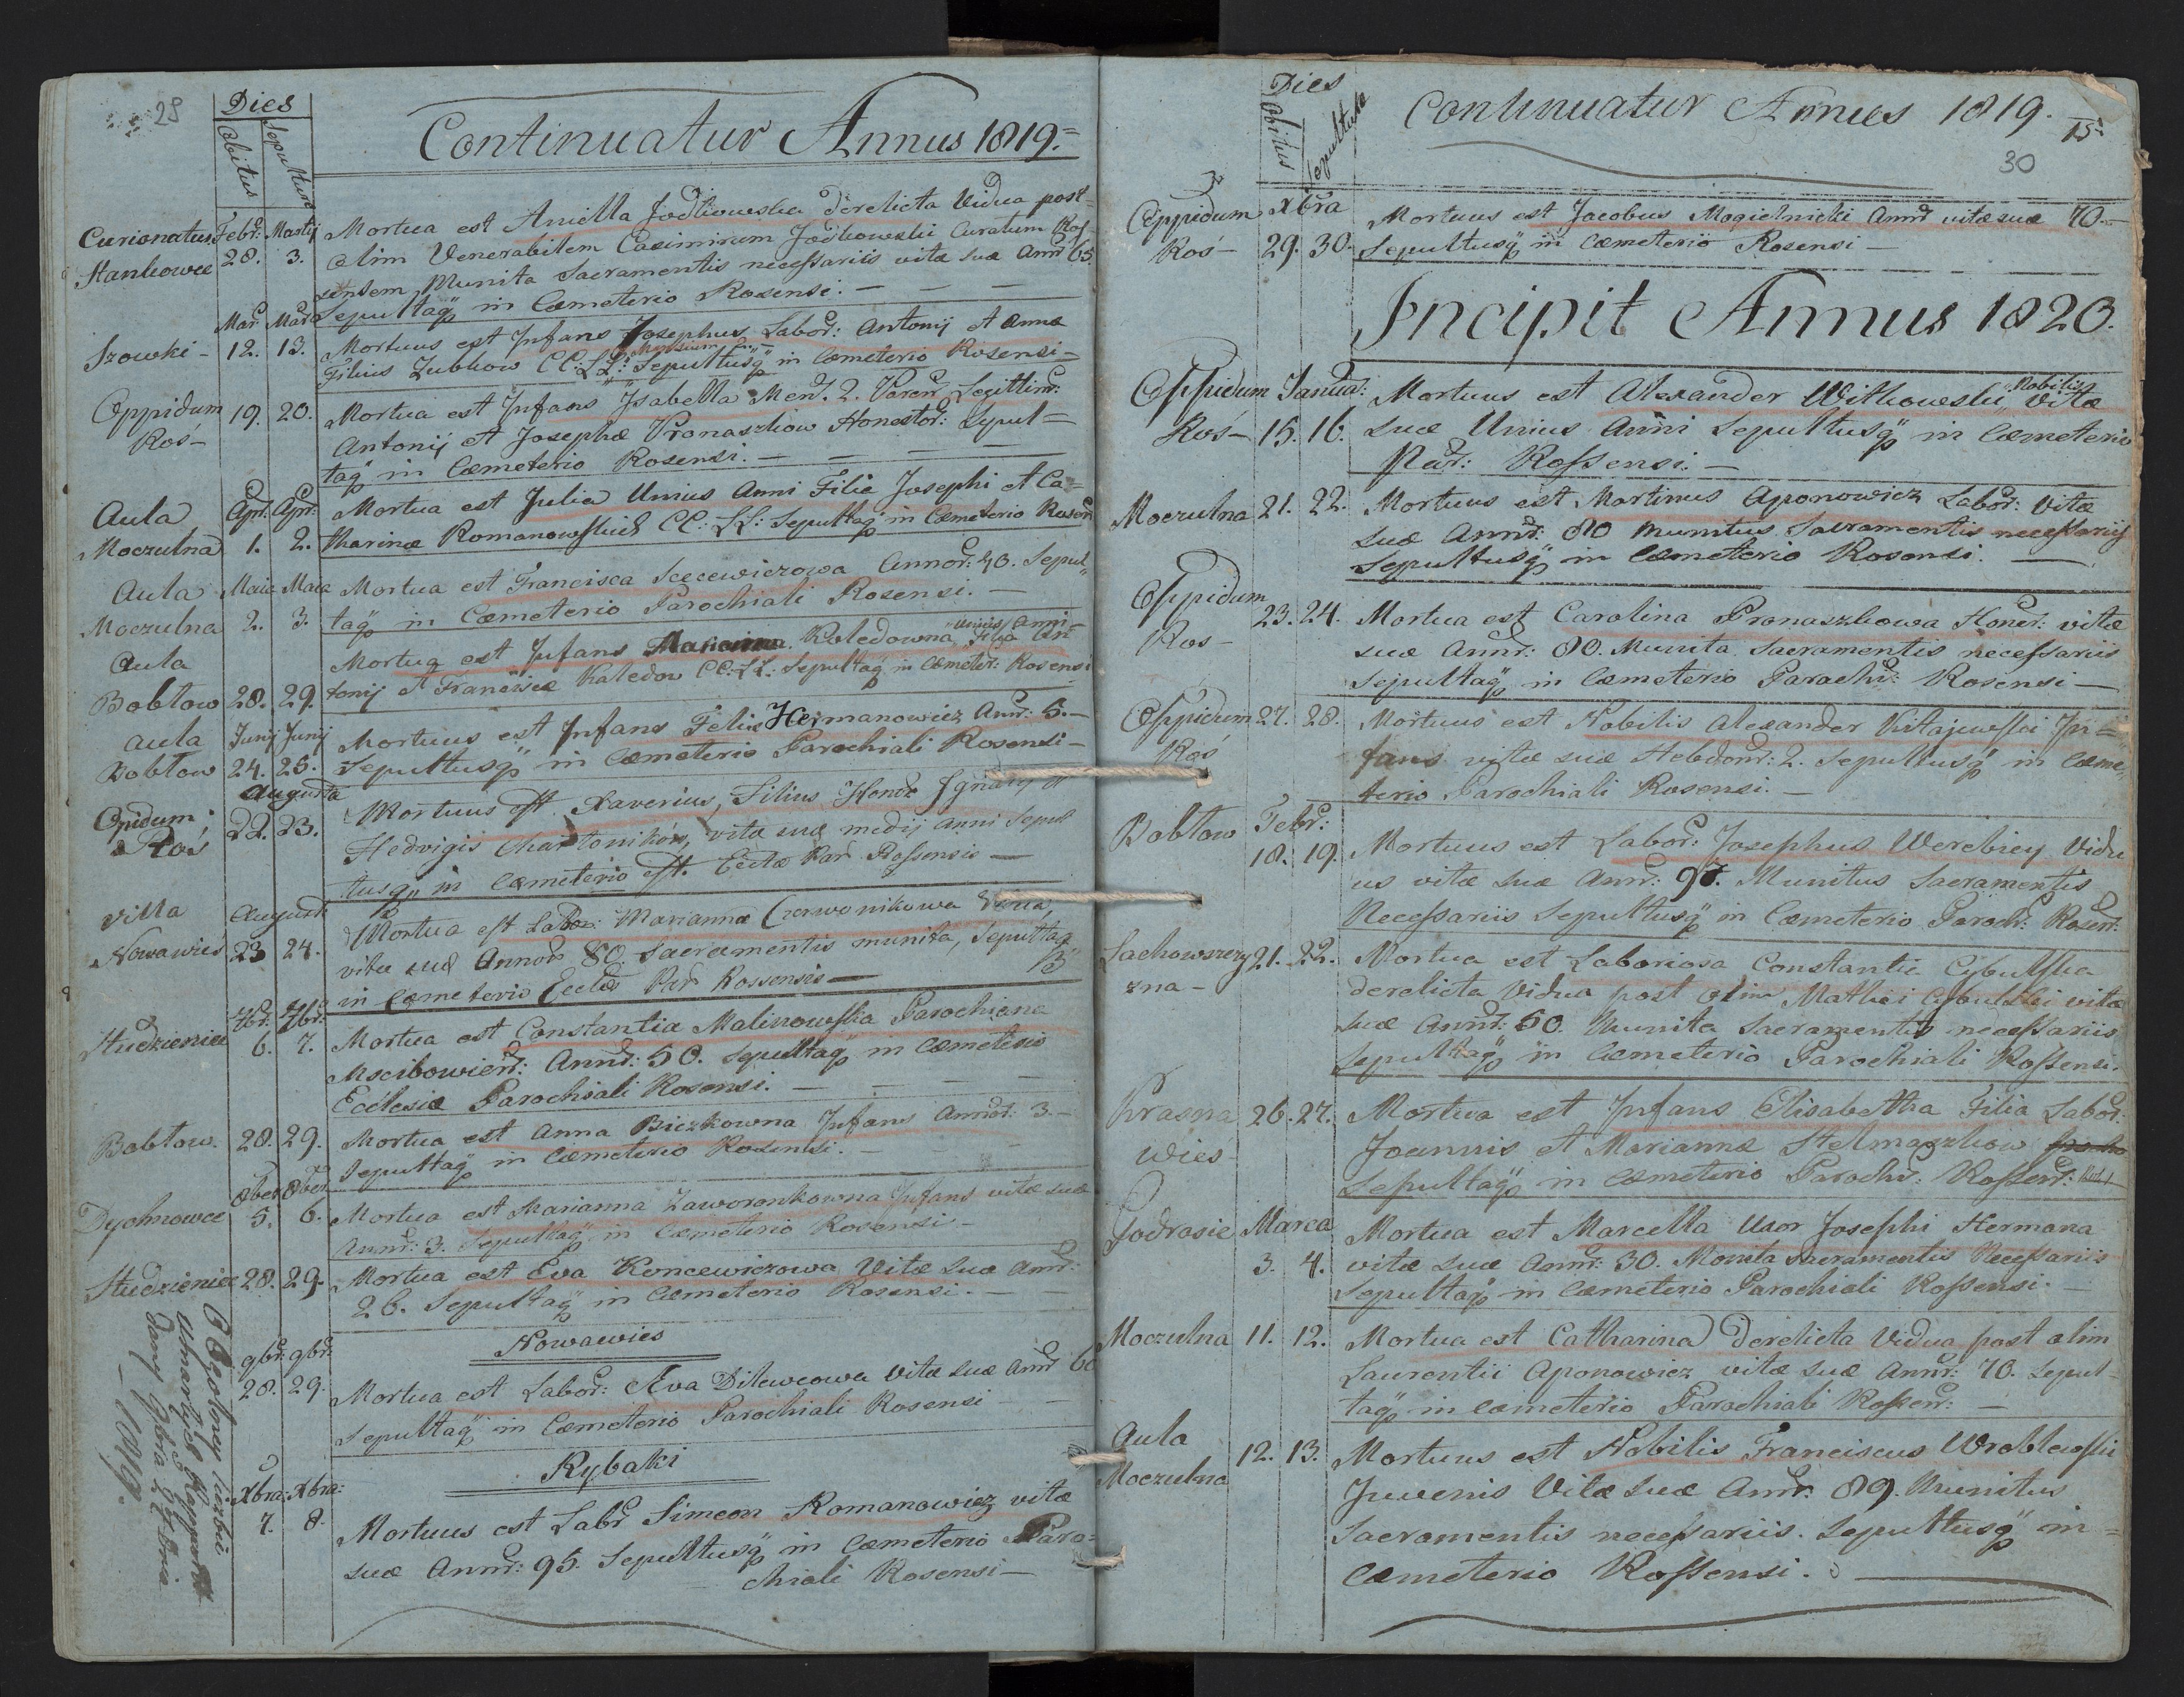 29
Dies
Obitus
Sepulturæ
Continuatur Annus 1819.=
Curionatus Febr: Martij Mortua est Aniella Jodkowska derelicta Vidua post
Stankowce 28. 3. olim Venerabilem Casimirum Jodkowski Curatum Ros-
sensem Munita Sacramentis necessariis vitæ suæ Annor 65
Sepultaq in Cæmeterio Rosensi. —
Mar: Mar:
Szowki - 12. 13. Mortuus est Infans Josephus Labor: Antonij et Annæ
Filius Zubkow CC: LL: Sepultusq in Cæmeterio Rosensi -
Oppidum 19. 20. Mortua est Infans Isabella Men. 2. Paren Legittim:
Roś - Antonij et Josephæ Pronaszkow Honestor: Sepul=
taq in Cæmeterio Rosensi. —
Aula Apr: Apr: Mortua est Julia Unius Anni Filia Josephi et Ca=
Moczulna 1. 2. tharinæ Romanowskich CC: LL: Sepultaq in Cæmeterio Rosen
Aula Maia Maia Mortua est Francisca Scecewiczowa Annor: 40. Sepul"
Moczulna 2. 3. taq in Cæmeterio Parochiali Rosensi. —
Aula Mortua est Infans Marianna Koledowna Unius Anni Filia An-
Bobłow 28. 29. tonij et Franciscæ Koledow CC: LL: Sepultaq in Cæmeter: Rosensi
Aula Junij Junij Mortuus est Infans Felix Hermanowicz Annr: 5. —
Bobłow 24. 25. Sepultusq in Cæmeterio Parochiali Rosensi -
Augusta
Opidum 22. 23. Mortuus est Xaverius, Filius Honor Ignatij et
Roś Hedvigis Chartoników, vitæ suæ medij anni Sepul
tusq in Cæmeterio est. Eccłæ Par Rossensis —
Villa August Mortua est Labor: Marianna Czerwonikowa Vidua,
Nowawieś 23 24. vitæ suæ Annor 80. Sacramentis munita, Sepultaq
in Cæmeterio Eccłæ Par Rossensis —
7br: 7br:
Studzieniec 6. 7. Mortua est Constantia Malinowska Parochiana
Mscibowien: Annor: 50. Sepultaq in Cæmeterio
Ecclesiæ Parochiali Rosensi. —
Bobłow. 28. 29. Mortua est Anna Biczkowna Infans Annor: 3. —
Sepultaq in Cæmeterio Rosensi. —
8ber 8ber
Dychnowce 5. 6. Mortua est Marianna Zaworonkowna Infans vitæ suæ
Annor: 3. Sepultaq in Cæmeterio Rosensi —
Studzieniec 28. 29. Mortua est Eva Koncewiczowa Vitæ Suæ Annr:
26. Sepultaq in Cæmeterio Rosensi. —
Nowawies
9br: 9br:
28. 29. Mortua est Labor: Ava Dilewcowa Vitæ Suæ Annr 60
Sepultaq in Cæmeterio Parochiali Rosensi —
Rybaki
Xbra: Xbra:
7. 8. Mortuus est Labr Simeon Romanowicz vitæ
suæ Annor: 95. Sepultusq in Cæmeterio Paro=
chiali Rosensi —
O Ogolney liczbie
umarłych Rapport
dany 9bra 24 dnia
— 1819.
Dies
Obitus
Sepulturæ
Continuatur Annus 1819.
15
30
Oppidum Xbra Mortuus est Jacobus Mogielnicki Annr vitæ suæ 70. —
Roś - 29. 30. Sepultusq in Cæmeterio Rosensi —
Incipit Annus 1820.
Oppidum Janua: Mortuus est Alexander Witkowski Nobilis Vitæ
Ros - 15. 16. suæ Unius Anni Sepultusq in Cæmeterio
Par: Rossensi. —
Moczulna 21. 22. Mortuus est Martinus Aponowicz Labor: Vitæ
suæ Annr: 80 munitus Sacramentis necessarijs
Sepultusq in Cæmeterio Rosensi. —
Oppidum 23. 24. Mortua est Carolina Pronaszkowa Honer: vitæ
Ros - suæ Annr: 80. Munita Sacramentis necessariis
Sepultaq in Cæmeterio Parochi: Rosensi —
Oppidum 27. 28. Mortuus est Nobilis Alexander Kitajewski In=
Roś fans vitæ suæ Hebdomr: 2. Sepultusq in Cæme,
terio Parochiali Rosensi. —
Bobłow Febr:
18. 19 Mortuus est Labor: Josephus Werebiey Vidu
us vitæ suæ Annr: 97. Munitus Sacramentis
Necessariis Sepultusq in Cæmeterio Paroch: Rosen:
Lachowszczy 21. 22. Mortua est Laboriosa Constantia Cybulska
zna - derelicta Vidua post olim Mathei Cybulski vitæ
suæ Annr: 50. Munita Sacramentis necessariis
Sepultaq in Cæmeterio Parochiali Rossensi.
Krasna 26. 27. Mortua est Infans Elisabetha Filia Labor:
Wieś Joannis et Mariannæ Stelmaszkow
Sepultaq in Cæmeterio Parochi: Rossen:
Podrosie Marca Mortua est Marcella Uxor Josephi Hermana
3. 4. vitæ suæ Annr: 30. Munita Sacramentis Necessariis
Sepultaq in Cæmeterio Parochiali Rossensi. —
Moczulna 11. 12. Mortua est Catharina derelicta Vidua post olim
Laurentii Aponowicz vitæ suæ Annr: 70. Sepul-
taq in Cæmeterio Parochiali Rossen: —
Aula
Moczulna 12. 13. Mortuus est Nobilis Franciscus Wroblewski
Juvenis Vitæ Suæ Annr: 89. Munitus
Sacramentis necessariis. Sepultusq in =
Cæmeterio Rossensi. —